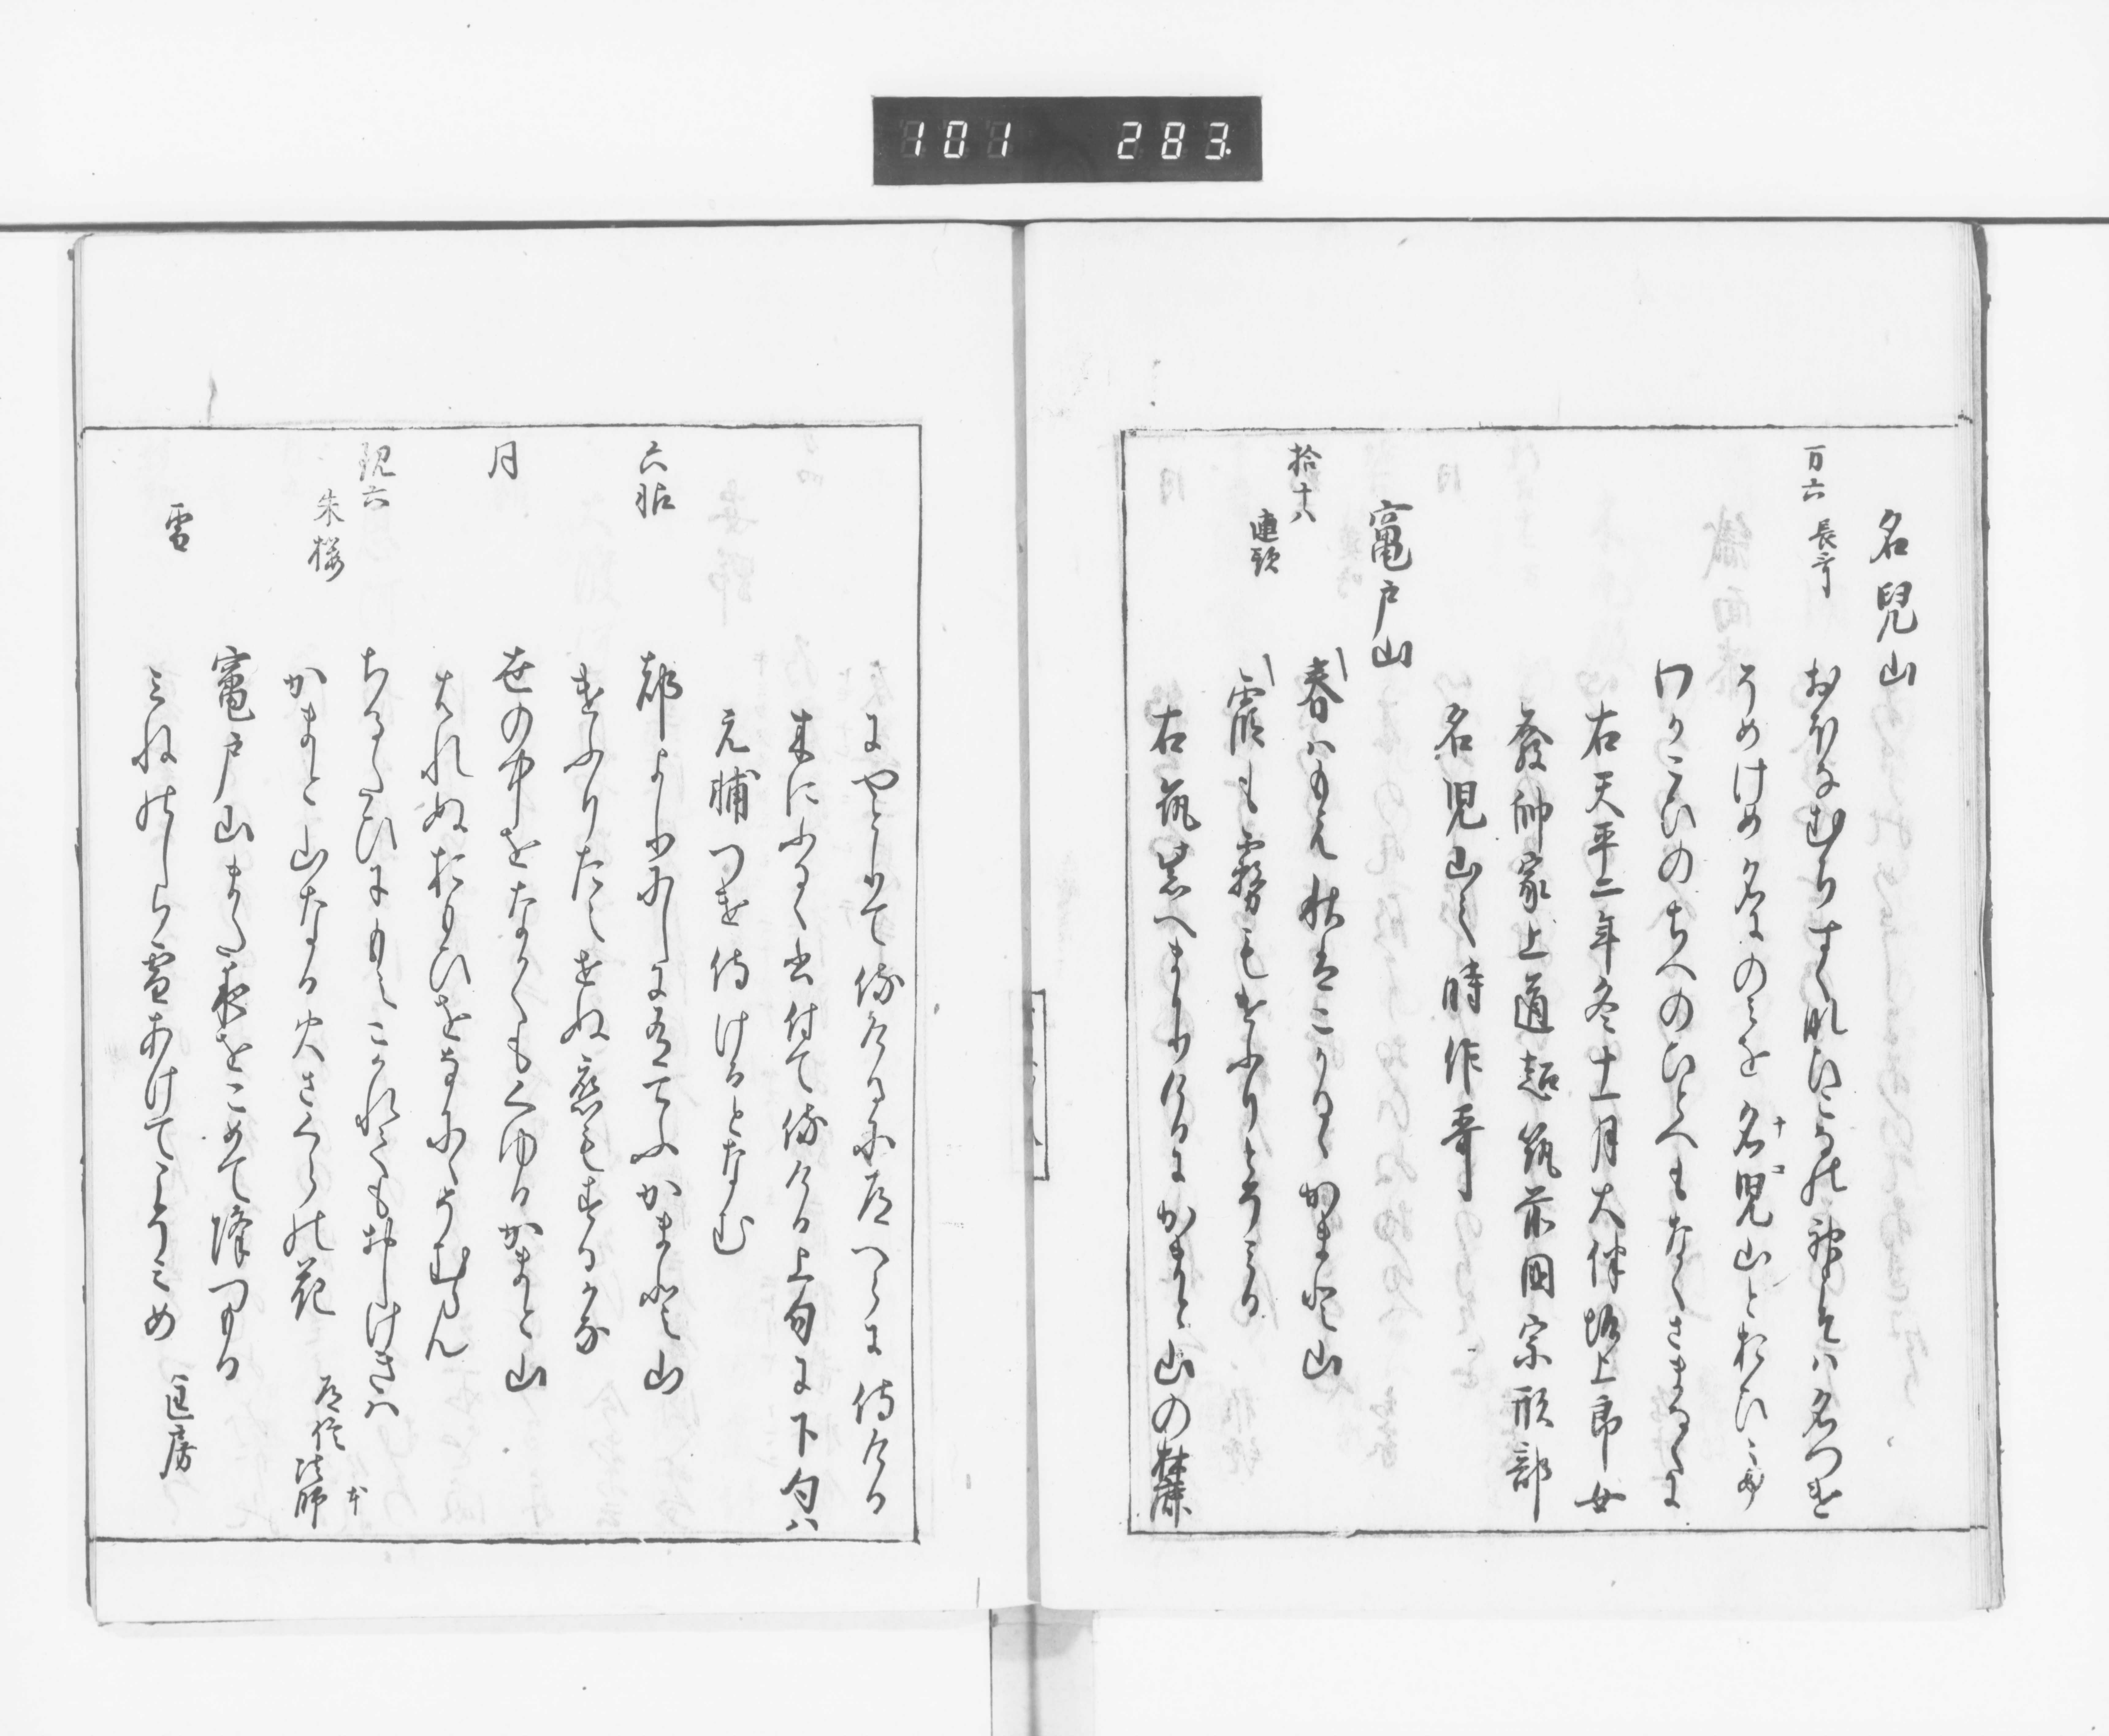 101 283
名兒山
万六 長哥
おほなむちすくなひこなの神こそハ名つけ
そめけめ名にのみを名児山とおひて
ナコ
わかこひのちへのひとへもなくさまなくに
右天平二年冬十一月大伴坂上郎女
發帥家上道超筑前国宗形部
名児山之時作哥
竈戸山
拾十八 連歌
春ハもえ秋はこかるゝかまと山
霞も霧もけふりとそみる
右筑紫へまかりけるにかまと山の麓
にやとりて侍けるに道つらに侍ける
木にふるく書付て侍ける上句に下句ハ
元輔つけ侍けるとなむ
六帖
都よりにしに有てふかまと山
けふりたえせぬ恋もするかな
同
世の中をなけくもくゆるかまと山
はれぬおもひをなにゝそむらん
現六
ちるたひにもえこかれてもおしけきハ
朱桜
かまと山なる火さくらの花 道信法師 本
竈戸山また夜をこめて降つもる
雪
みねのしら雪あけてこそみめ 匡房